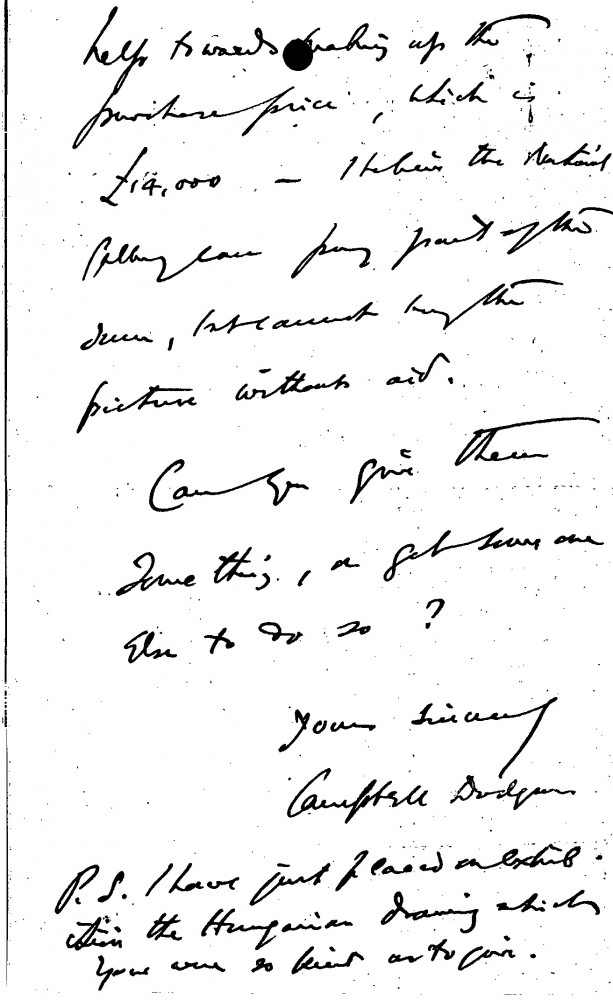 help towards making up the
purchase price, which is
£14,000 — I believe the National
Gallery can pay part of the
sum, but cannot buy the
picture without aid.
Can you give them
something, or get some one
else to do so?
Yours sincerely
Campbell Dodgson
P.S. I have just placed on exhib-
ition the Hungarian drawing which
you were so kind as to give.